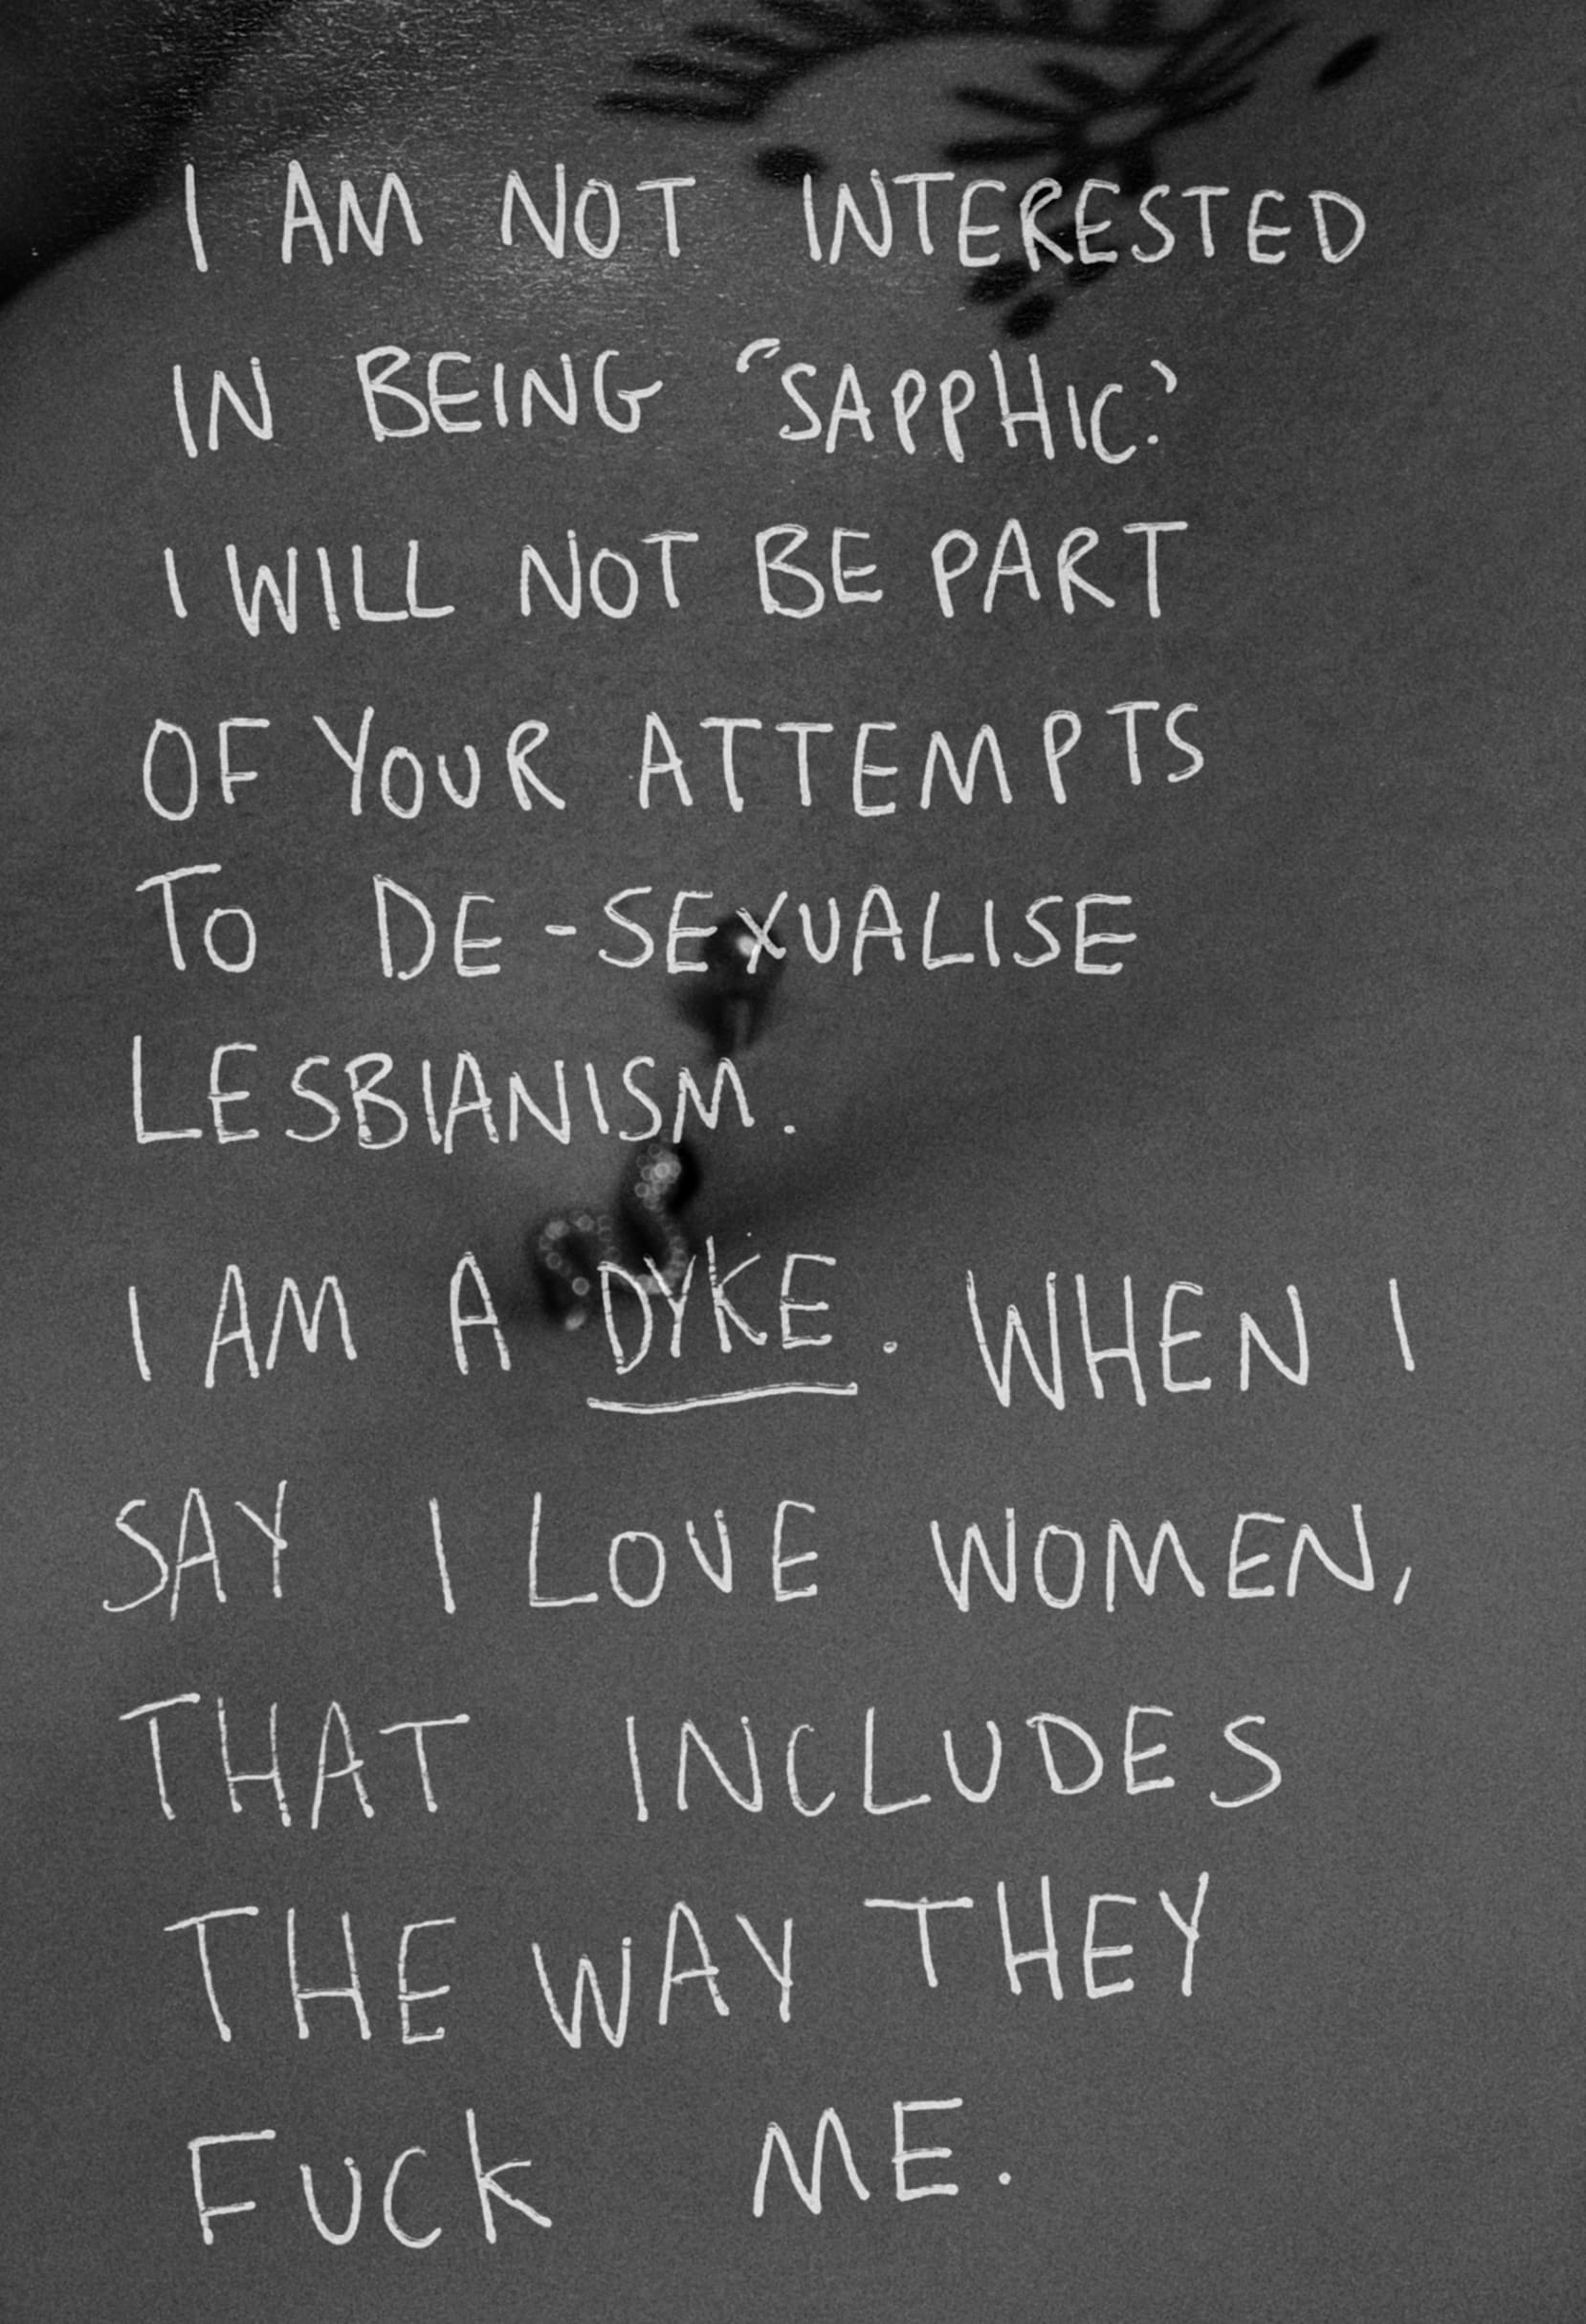 I AM NOT INTERESTED
IN BEING "SAPPHIC."
I WILL NOT BE PART
OF YOUR ATTEMPTS
TO DE-SEXUALISE
LESBIANISM.
I AM A DYKE. WHEN I
SAY I LOVE WOMEN,
THAT INCLUDES
THE WAY THEY
FUCK ME.